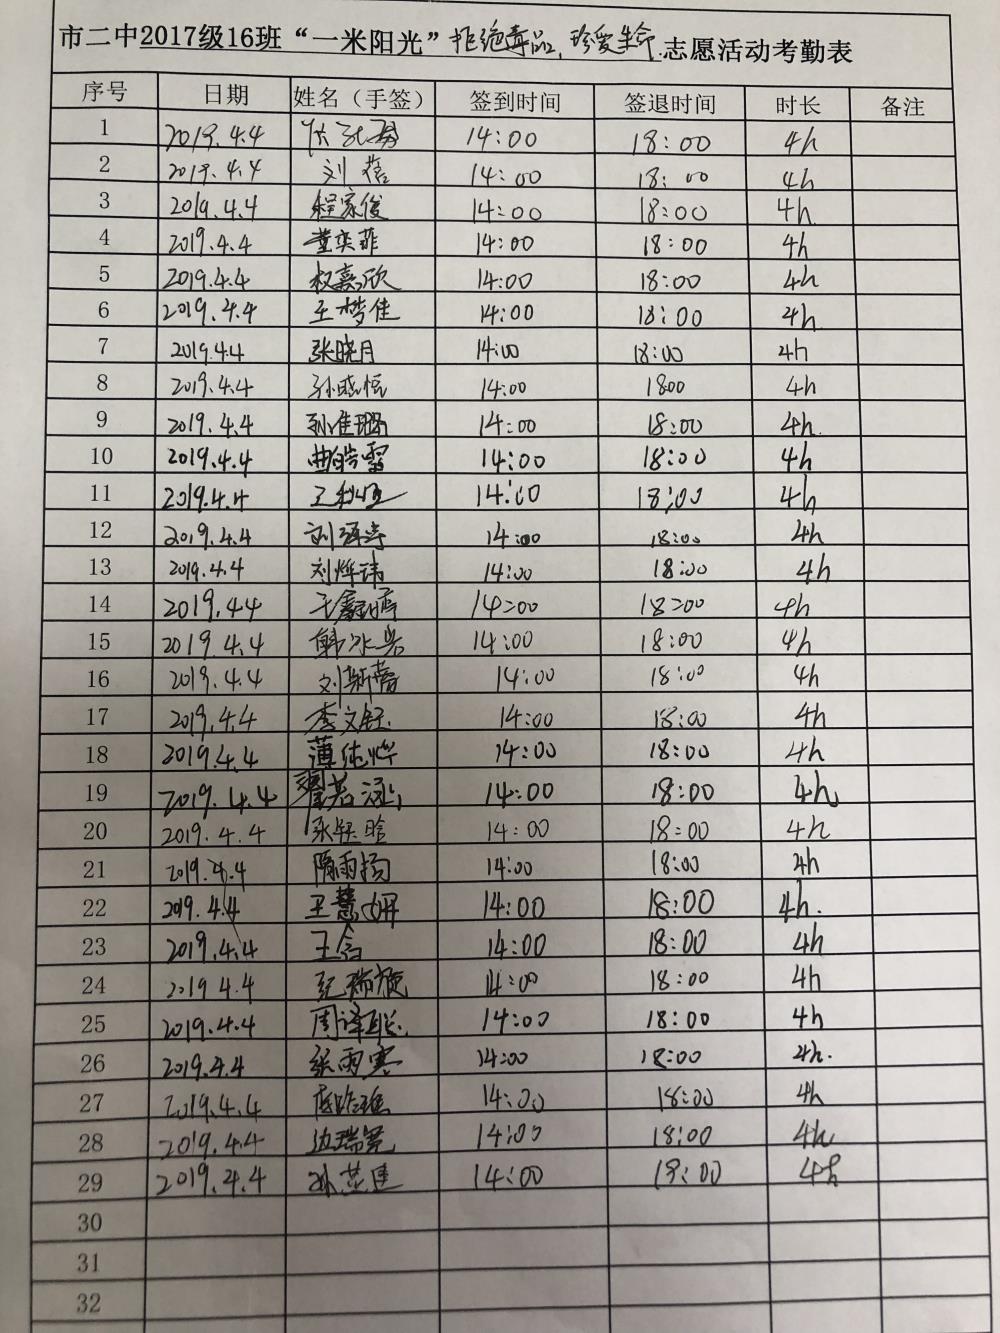 市二中2017级16班“一米阳光”拒绝毒品,珍爱生命.志愿活动考勤表
序号 日期 姓名（手签） 签到时间 签退时间 时长 备注
1 2019.4.4 14:00 18:00 4h
2 2019.4.4 刘蓓 14:00 18:00 4h
3 2019.4.4 程家俊 14:00 18:00 4h
4 2019.4.4 董奕菲 14:00 18:00 4h
5 2019.4.4 权嘉欣 14:00 18:00 4h
6 2019.4.4 王梦佳 14:00 18:00 4h
7 2019.4.4 张晓月 14:00 18:00 4h
8 2019.4.4 孙晓恒 14:00 1800 4h
9 2019.4.4 14:00 18:00 4h.
10 2019.4.4 曲皓雷 14:00 18:00 4h
11 2019.4.4 14:00 18:00 4h
12 2019.4.4 14:00 18:00 4h
13 2019.4.4 刘烨玮 14:00 18:00 4h
14 2019.44 14:00 18:00 4h
15 2019.4.4 14:00 18:00 4h
16 2019.4.4 14:00 18:00 4h
17 2019.4.4 李文钰 14:00 18:00 4h
18 2019.4.4 14:00 18:00 4h
19 2019.4.4 14:00 18:00 4h
20 2019.4.4 张钰晗 14:00 18:00 4h
21 2019.4.4 隋雨扬 14:00 18:00 4h
22 2019.4.4 王慧妍 14:00 18:00 4h.
23 2019.4.4 14:00 18:00 4h
24 2019 4.4 14:00 18:00 4h
25 2019.4.4 周译聪 14:00 18:00 4h
26 2019.4.4 张雨寒 14:00 18:00 4h.
27 2019.4.4 14:00 18:00 4h
28 2019.4.4 14:00 18:00 4h
29 2019.4.4 14:00 18:00 4h
30
31
32